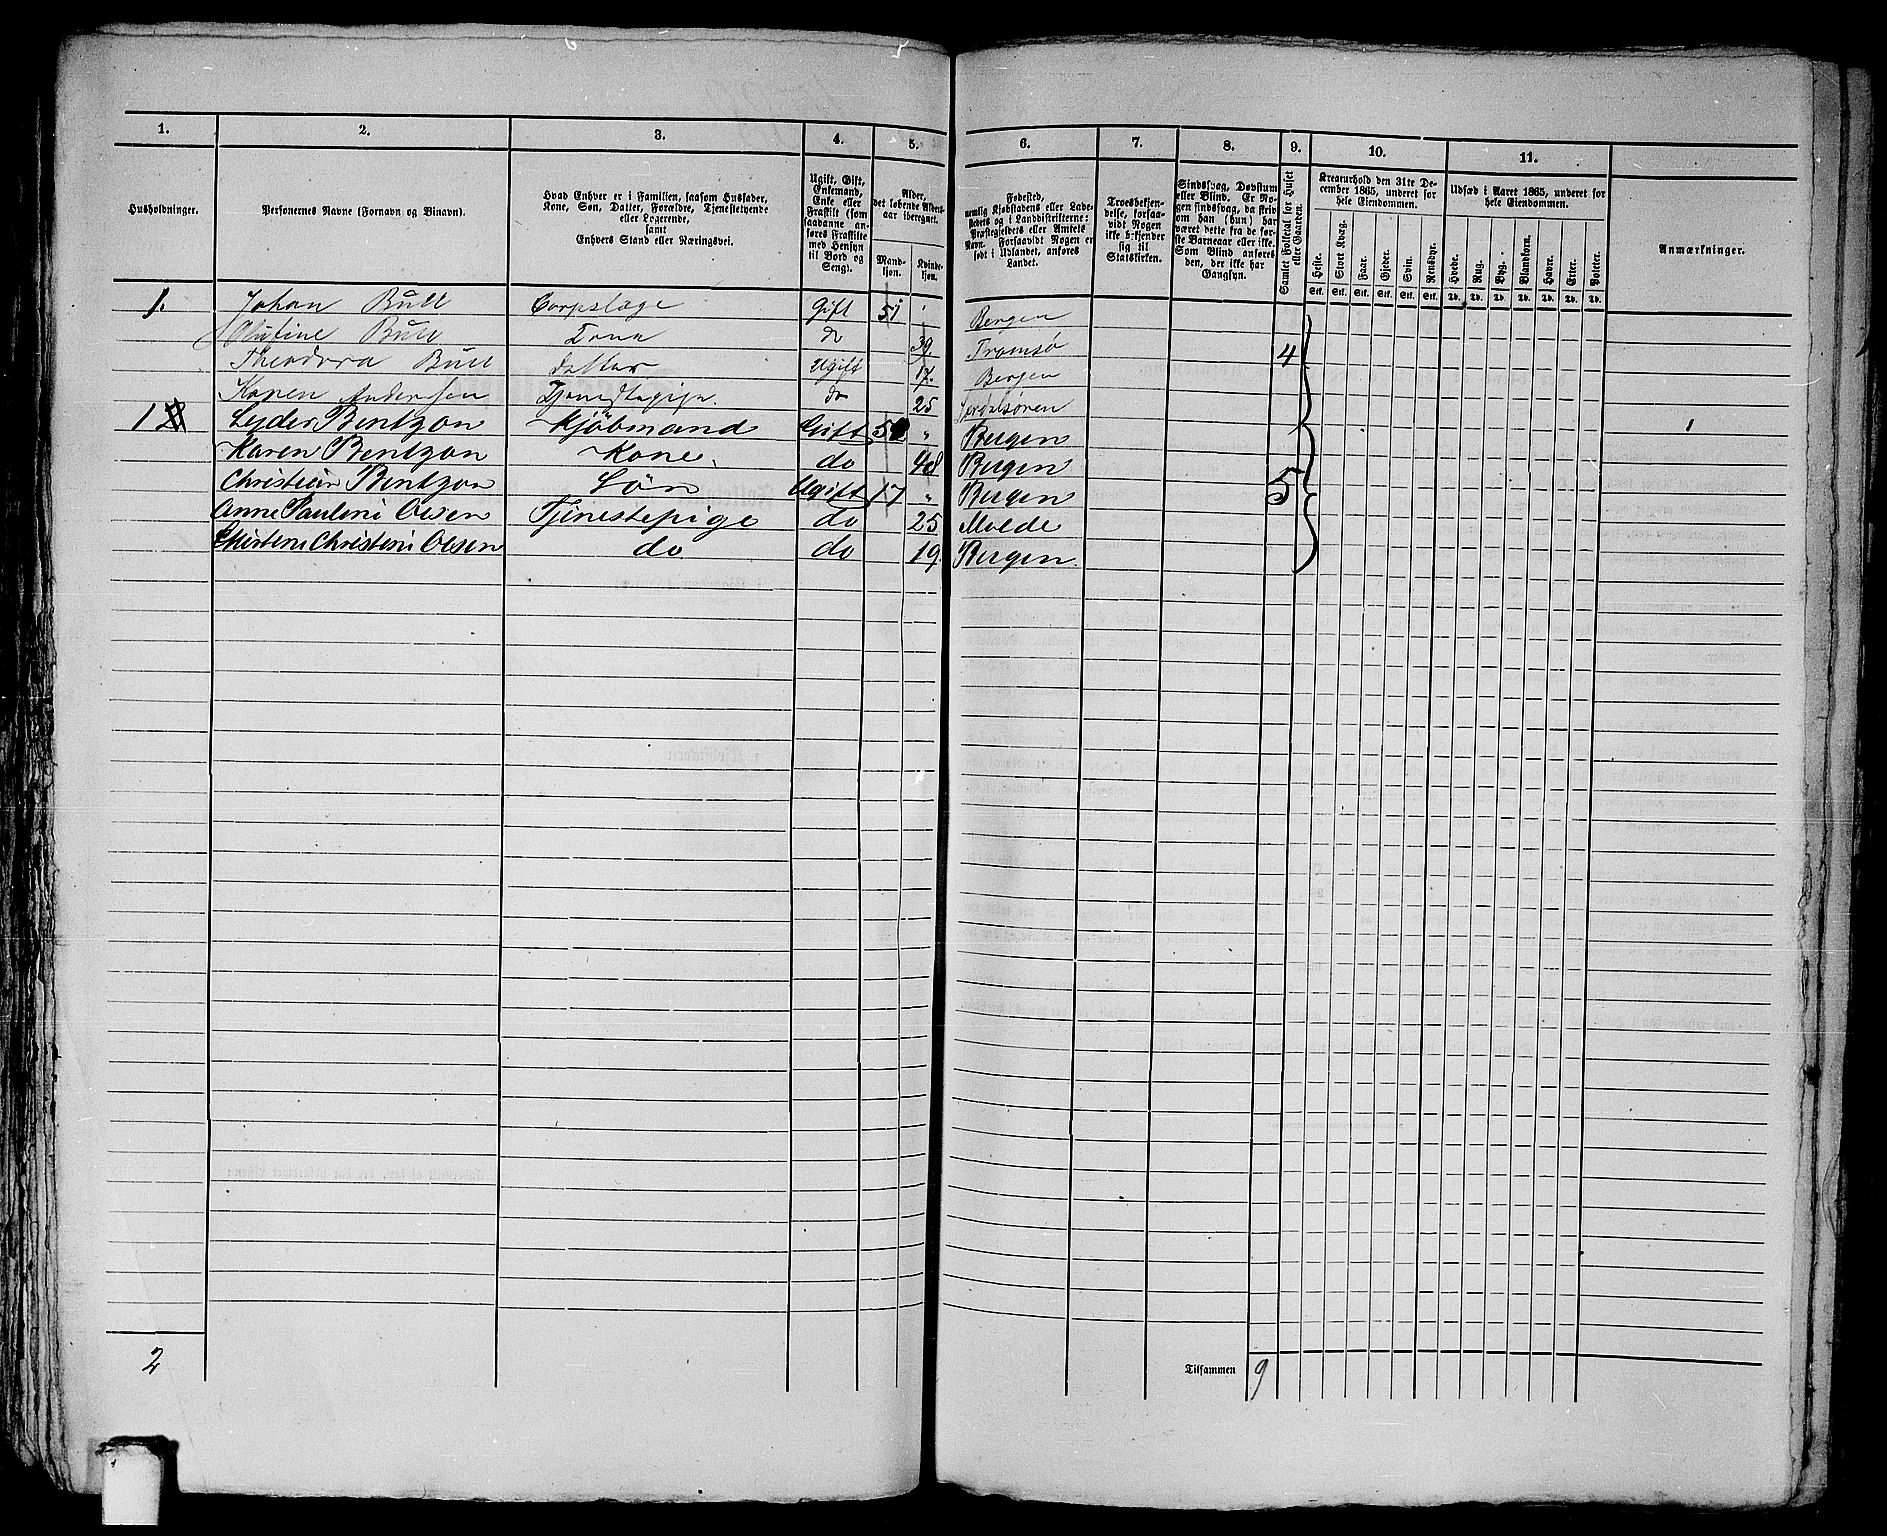 1. 2. 3. 4. 5. 6. 7. 8. 9. 10. 11.
Husholdninger.
Personernes Navne (Fornavn og Binavn).
Hvad Enhver er i Familien, saasom Husfader,
Kone, Søn, Datter, Forældre, Tjenestetyende
eller Logerende,
samt
Enhvers Stand eller Næringsvei.
Ugift, Gift,
Enkemand,
Enke eller
Fraskilt (som
saadanne an-
føres Fraskilte
med Hensyn
til Bord og
Seng).
Alder,
det løbende Alders-
aar iberegnet.
Mand-
kjøn.
Kvinde-
kjøn.
Fødested,
nemlig Kjøbstadens eller Lade-
stedets og i Landdistrikterne:
Præstegjeldets eller Amtets
Navn. Forsaavidt Nogen er
født i Udlandet, anføres
Landet.
Troesbekjen-
delse, forsaa-
vidt Nogen
ikke bekjender
sig til
Statskirken.
Sindssvag, Døvstum
eller Blind. Er No-
gen sindssvag, da skriv
om han (hun) har
været dette fra de før-
ste Barneaar eller ikke.
Som Blind anføres
den, der ikke har
Gangsyn.
Samlet Folketal for Huset
eller Gaarden.
Kreaturhold den 31te De-
cember 1865, underet for
hele Eiendommen.
Heste. Stort Kvæg. Faar. Gjeder. Svin. Rensdyr.
Stk. Stk. Stk. Stk. Stk. Stk.
Udsæd i Aaret 1865, underet for
hele Eiendommen.
Hvede. Rug. Byg. Blandkorn. Havre. Erter. Poteter.
Td. Td. Td. Td. Td. Td. Td.
Anmærkninger.
1. Johan Bull Corpslæge Gift 51 Bergen
Bull Kone do 39. Tromsø 4
Theodora Bull datter Ugift 17. Bergen
Karen Andersen do 25
1 Lyder Bentzon Kjöbmand Gift " Bergen
Karen Bentzon Kone. do 48 Bergen
Christian Bentzon Sön Ugift 17 " Bergen 5
Anne Pauline Olsen Tjenestepige do 25 Molde
Christine Olsen do do 19. Bergen.
2 Tilsammen 9